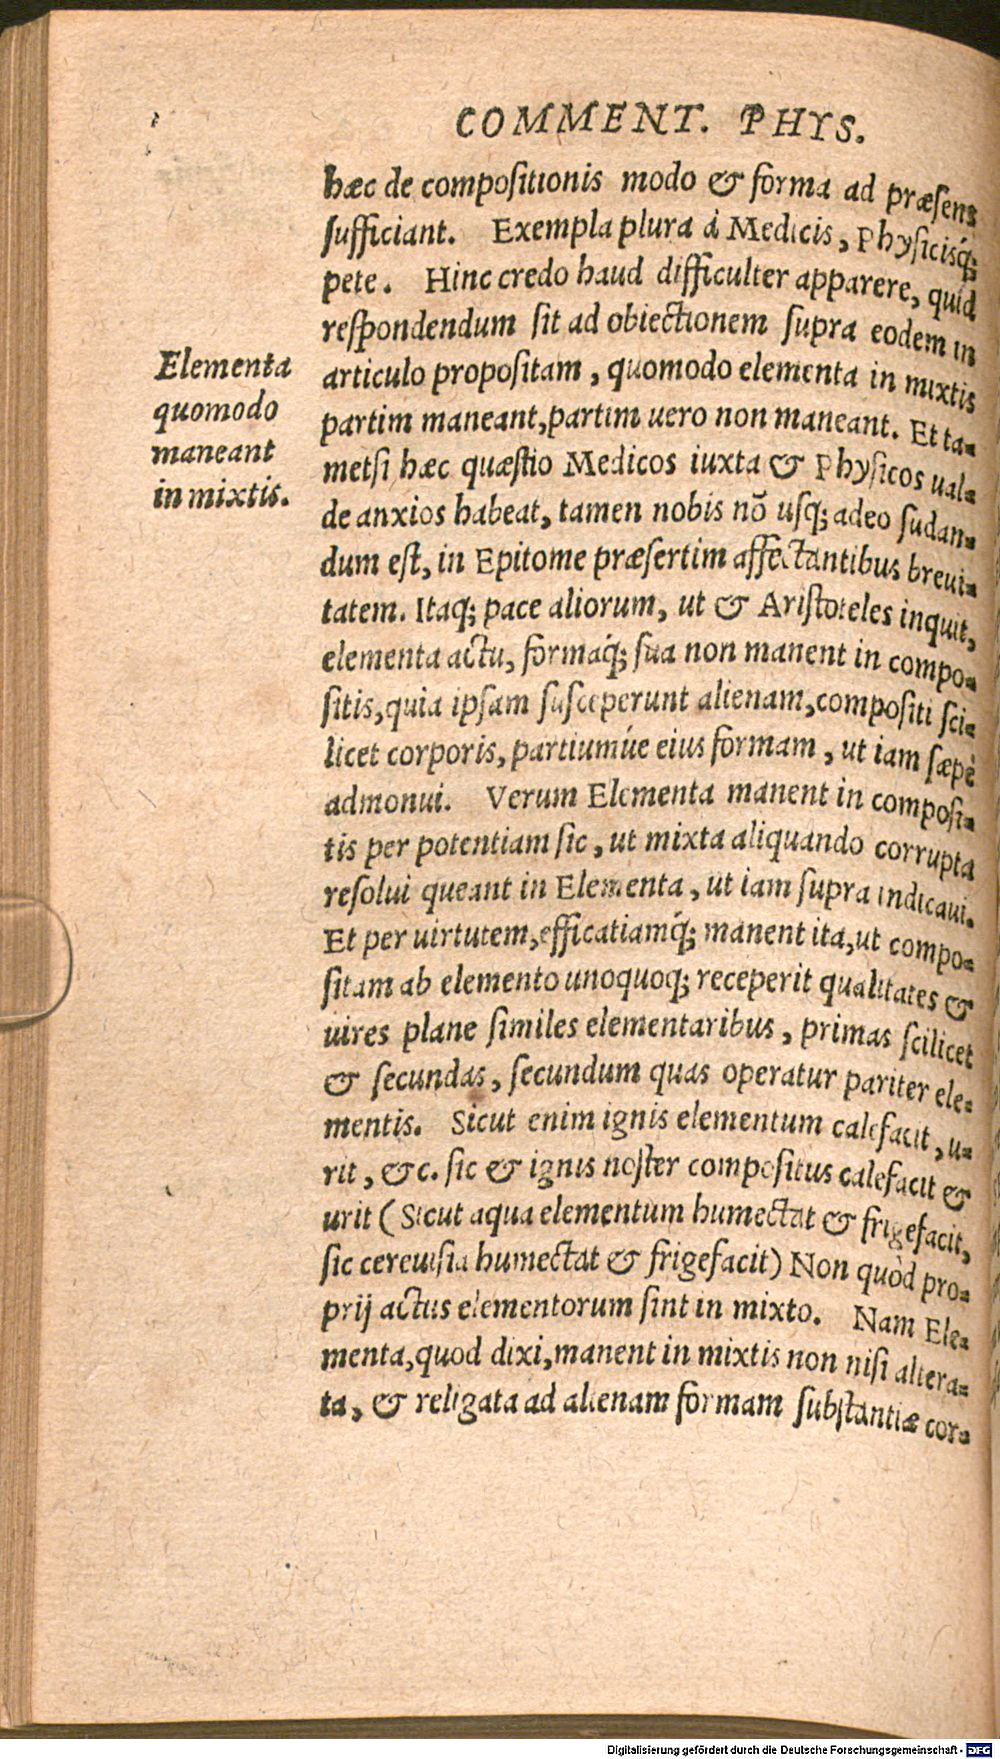 COMMENT. PHYS.
hæc de compositionis modo & forma ad præsens
sufficiant. Exempla plura à Medicis, Physicisq́;
pete. Hinc credo haud difficulter apparere, quid
respondendum sit ad obiectionem supra eodem in
articulo propositam, quomodo elementa in mixtis
partim maneant, partim uero non maneant. Et ta-
metsi hæc quæstio Medicos iuxta & Physicos ual-
de anxios habeat, tamen nobis nō usq; adeo sudan-
dum est, in Epitome præsertim affectantibus breui-
tatem. Itaq; pace aliorum, ut & Aristoteles inquit,
elementa actu, formaq́; sua non manent in compo-
sitis, quia ipsam susceperunt alienam, compositi sci-
licet corporis, partiumúe eius formam, ut iam sæpè
admonui. Verum Elementa manent in composi-
tis per potentiam sic, ut mixta aliquando corrupta
resolui queant in Elementa, ut iam supra indicaui.
Et per uirtutem, efficatiamq́; manent ita, ut compo-
sitam ab elemento unoquoq; receperit qualitates &
uires plane similes elementaribus, primas scilicet
& secundas, secundum quas operatur pariter ele-
mentis. Sicut enim ignis elementum calefacit, u-
rit, &c. sic & ignis noster compositus calefacit &
urit (Sicut aqua elementum humectat & frigefacit,
sic cereuisia humectat & frigefacit) Non quòd pro-
prij actus elementorum sint in mixto. Nam Ele-
menta, quod dixi, manent in mixtis non nisi altera-
ta, & religata ad alienam formam substantiæ cor-
Elementa
quomodo
maneant
in mixtis.
Digitalisierung gefördert durch die Deutsche Forschungsgemeinschaft - DFG